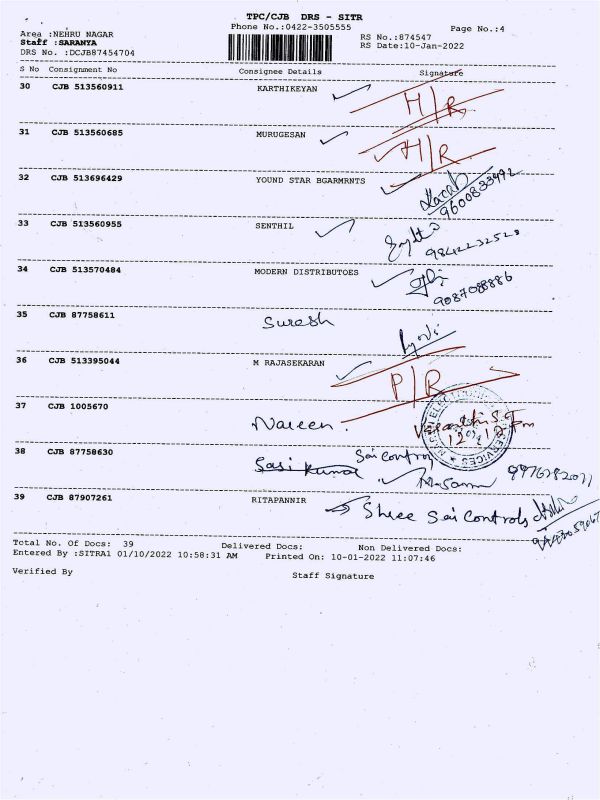 TPC/CJB DRS - SITR
Phone No.:0422-3505555
Page No.:4
Area :NEHRU NAGAR
RS No.:874547
Staff :SARANYA
RS Date:10-Jan-2022
DRS No. :DCJB87454704
S No Consignment No Consignee Details Signature
30 CJB 513560911 KARTHIKEYAN H/R
31 CJB 513560685 MURUGESAN H/R
32 CJB 513696429 YOUND STAR BGARMRNTS
9600833992
33 CJB 513560955 SENTHIL
9842232520
34 CJB 513570484 MODERN DISTRIBUTOES
9087088886
35 CJB 87758611 Suresh
36 CJB 513395044 M RAJASEKARAN P/R
37 CJB 1005670 Naveen.
38 CJB 87758630 Sasi Kumar Sai Control
39 CJB 87907261 RITAPANNIR Shree Sai Controls
Total No. Of Docs: 39 Delivered Docs: Non Delivered Docs:
Entered By :SITRA1 01/10/2022 10:58:31 AM Printed On: 10-01-2022 11:07:46
Verified By Staff Signature